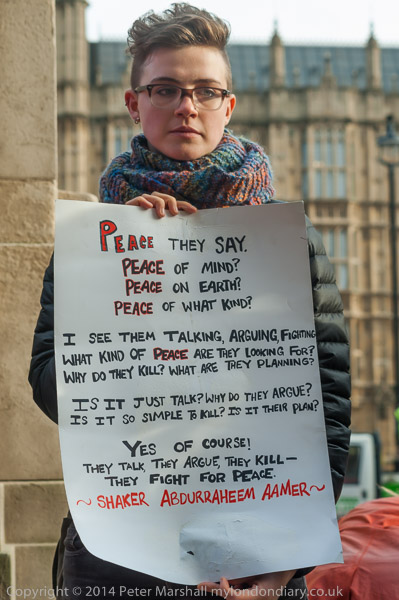 PEACE THEY SAY.
PEACE OF MIND?
PEACE ON EARTH?
PEACE OF WHAT KIND?
I SEE THEM TALKING, ARGUING, FIGHTING
WHAT KIND OF PEACE ARE THEY LOOKING FOR?
WHY DO THEY KILL? WHAT ARE THEY PLANNING?
IS IT JUST TALK? WHY DO THEY ARGUE?
IS IT SO SIMPLE TO KILL? IS IT THEIR PLAN?
YES OF COURSE!
THEY TALK, THEY ARGUE, THEY KILL—
THEY FIGHT FOR PEACE.
~ SHAKER ABDURRAHEEM AAMER ~
Copyright © 2014 Peter Marshall mylondondiary.co.uk